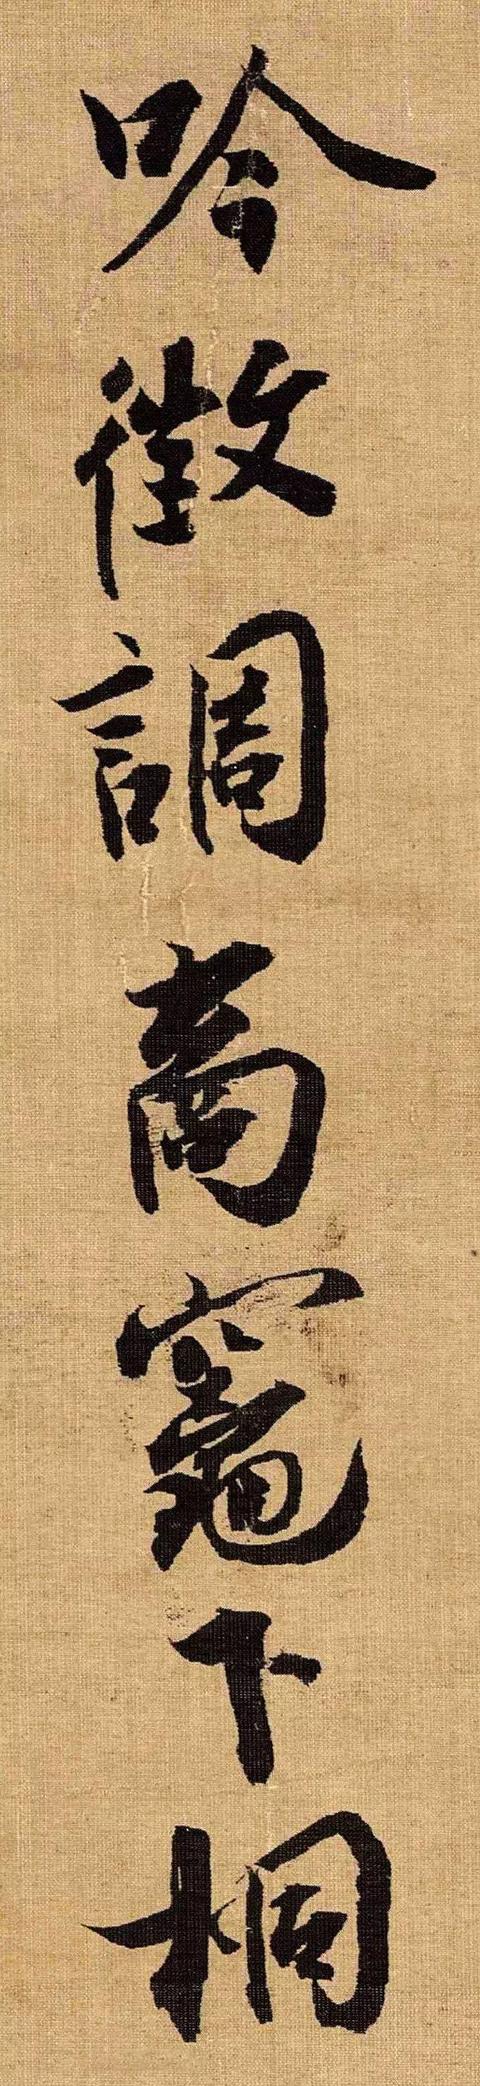 吟徴調商竈下桐